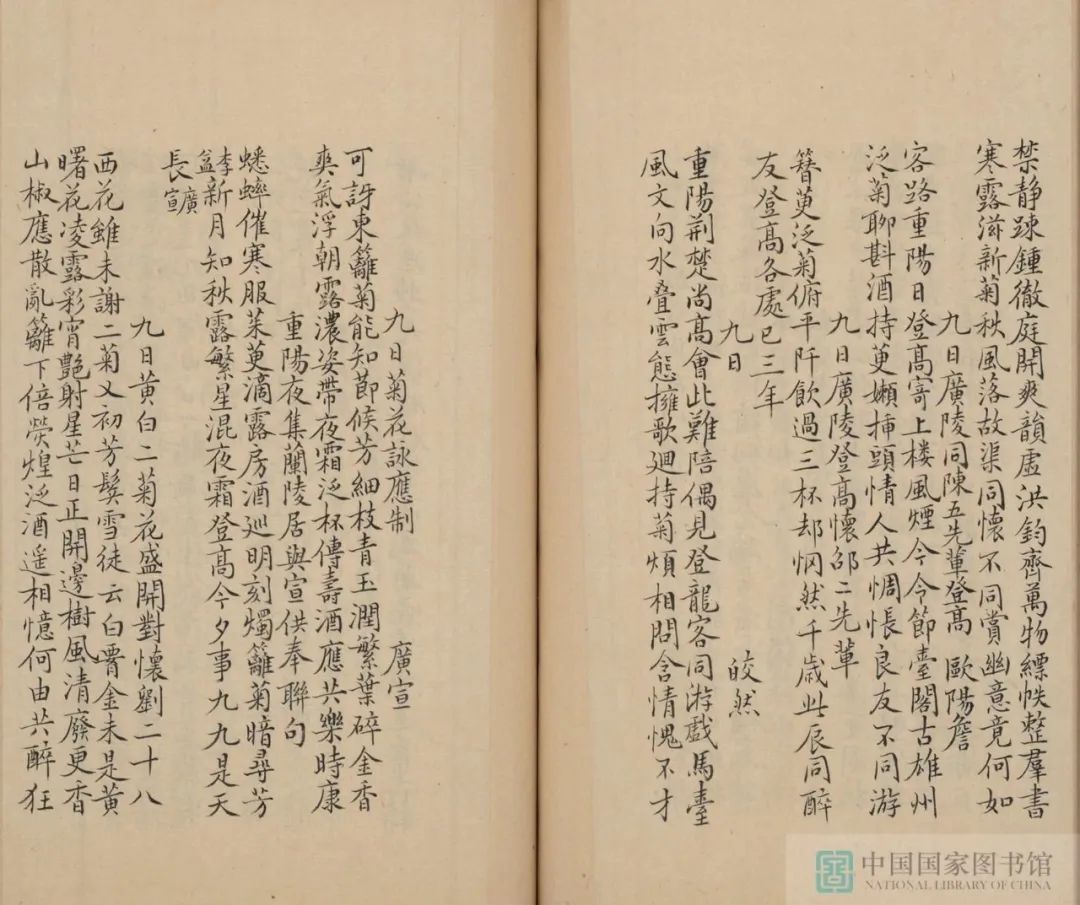 禁静踈鍾徹庭開爽韻虛洪鈞齊萬物縹帙整羣書
寒露滋新菊秋風落故渠同懷不同賞幽意竟何如
九日廣陵同陳五先輩登髙 歐陽詹
客路重陽日登髙寄上楼風煙今令節臺閣古雄州
泛菊聊斟酒持茰嬾揷頭情人共惆悵良友不同游
九日廣陵登髙懷邵二先輩
簪茰泛菊俯平阡飲過三杯却惘然千歳此辰同醉
友登髙各處已三年
九日 皎然
重陽荆楚尚髙會此難陪偶見登龍客同游戲馬臺
風文向水疊雲態擁歌廻持菊煩相問含情愧不才
九日菊花詠應制 廣宣
可訝東籬菊能知節候芳細枝青玉潤繁葉碎金香
爽氣浮朝露濃姿帶夜霜泛杯傳壽酒應共樂時康
重陽夜集蘭陵居與宣供奉聯句
蟋蟀催寒服茱茰滴露房酒巡明刻燭籬菊暗尋芳
李益新月知秋露繁星混夜霜登髙今夕事九九是天
長廣宣
九日黄白二菊花盛開對懷劉二十八
西花雖未謝二菊又初芳鬓雪徒云白腰金未是黄
曙花凌露彩宵艶射星芒日正開邊樹風清廢更香
山椒應散亂籬下倍熒煌泛酒遥相憶何由共醉狂
中国国家图书馆
NATIONAL LIBRARY OF CHINA